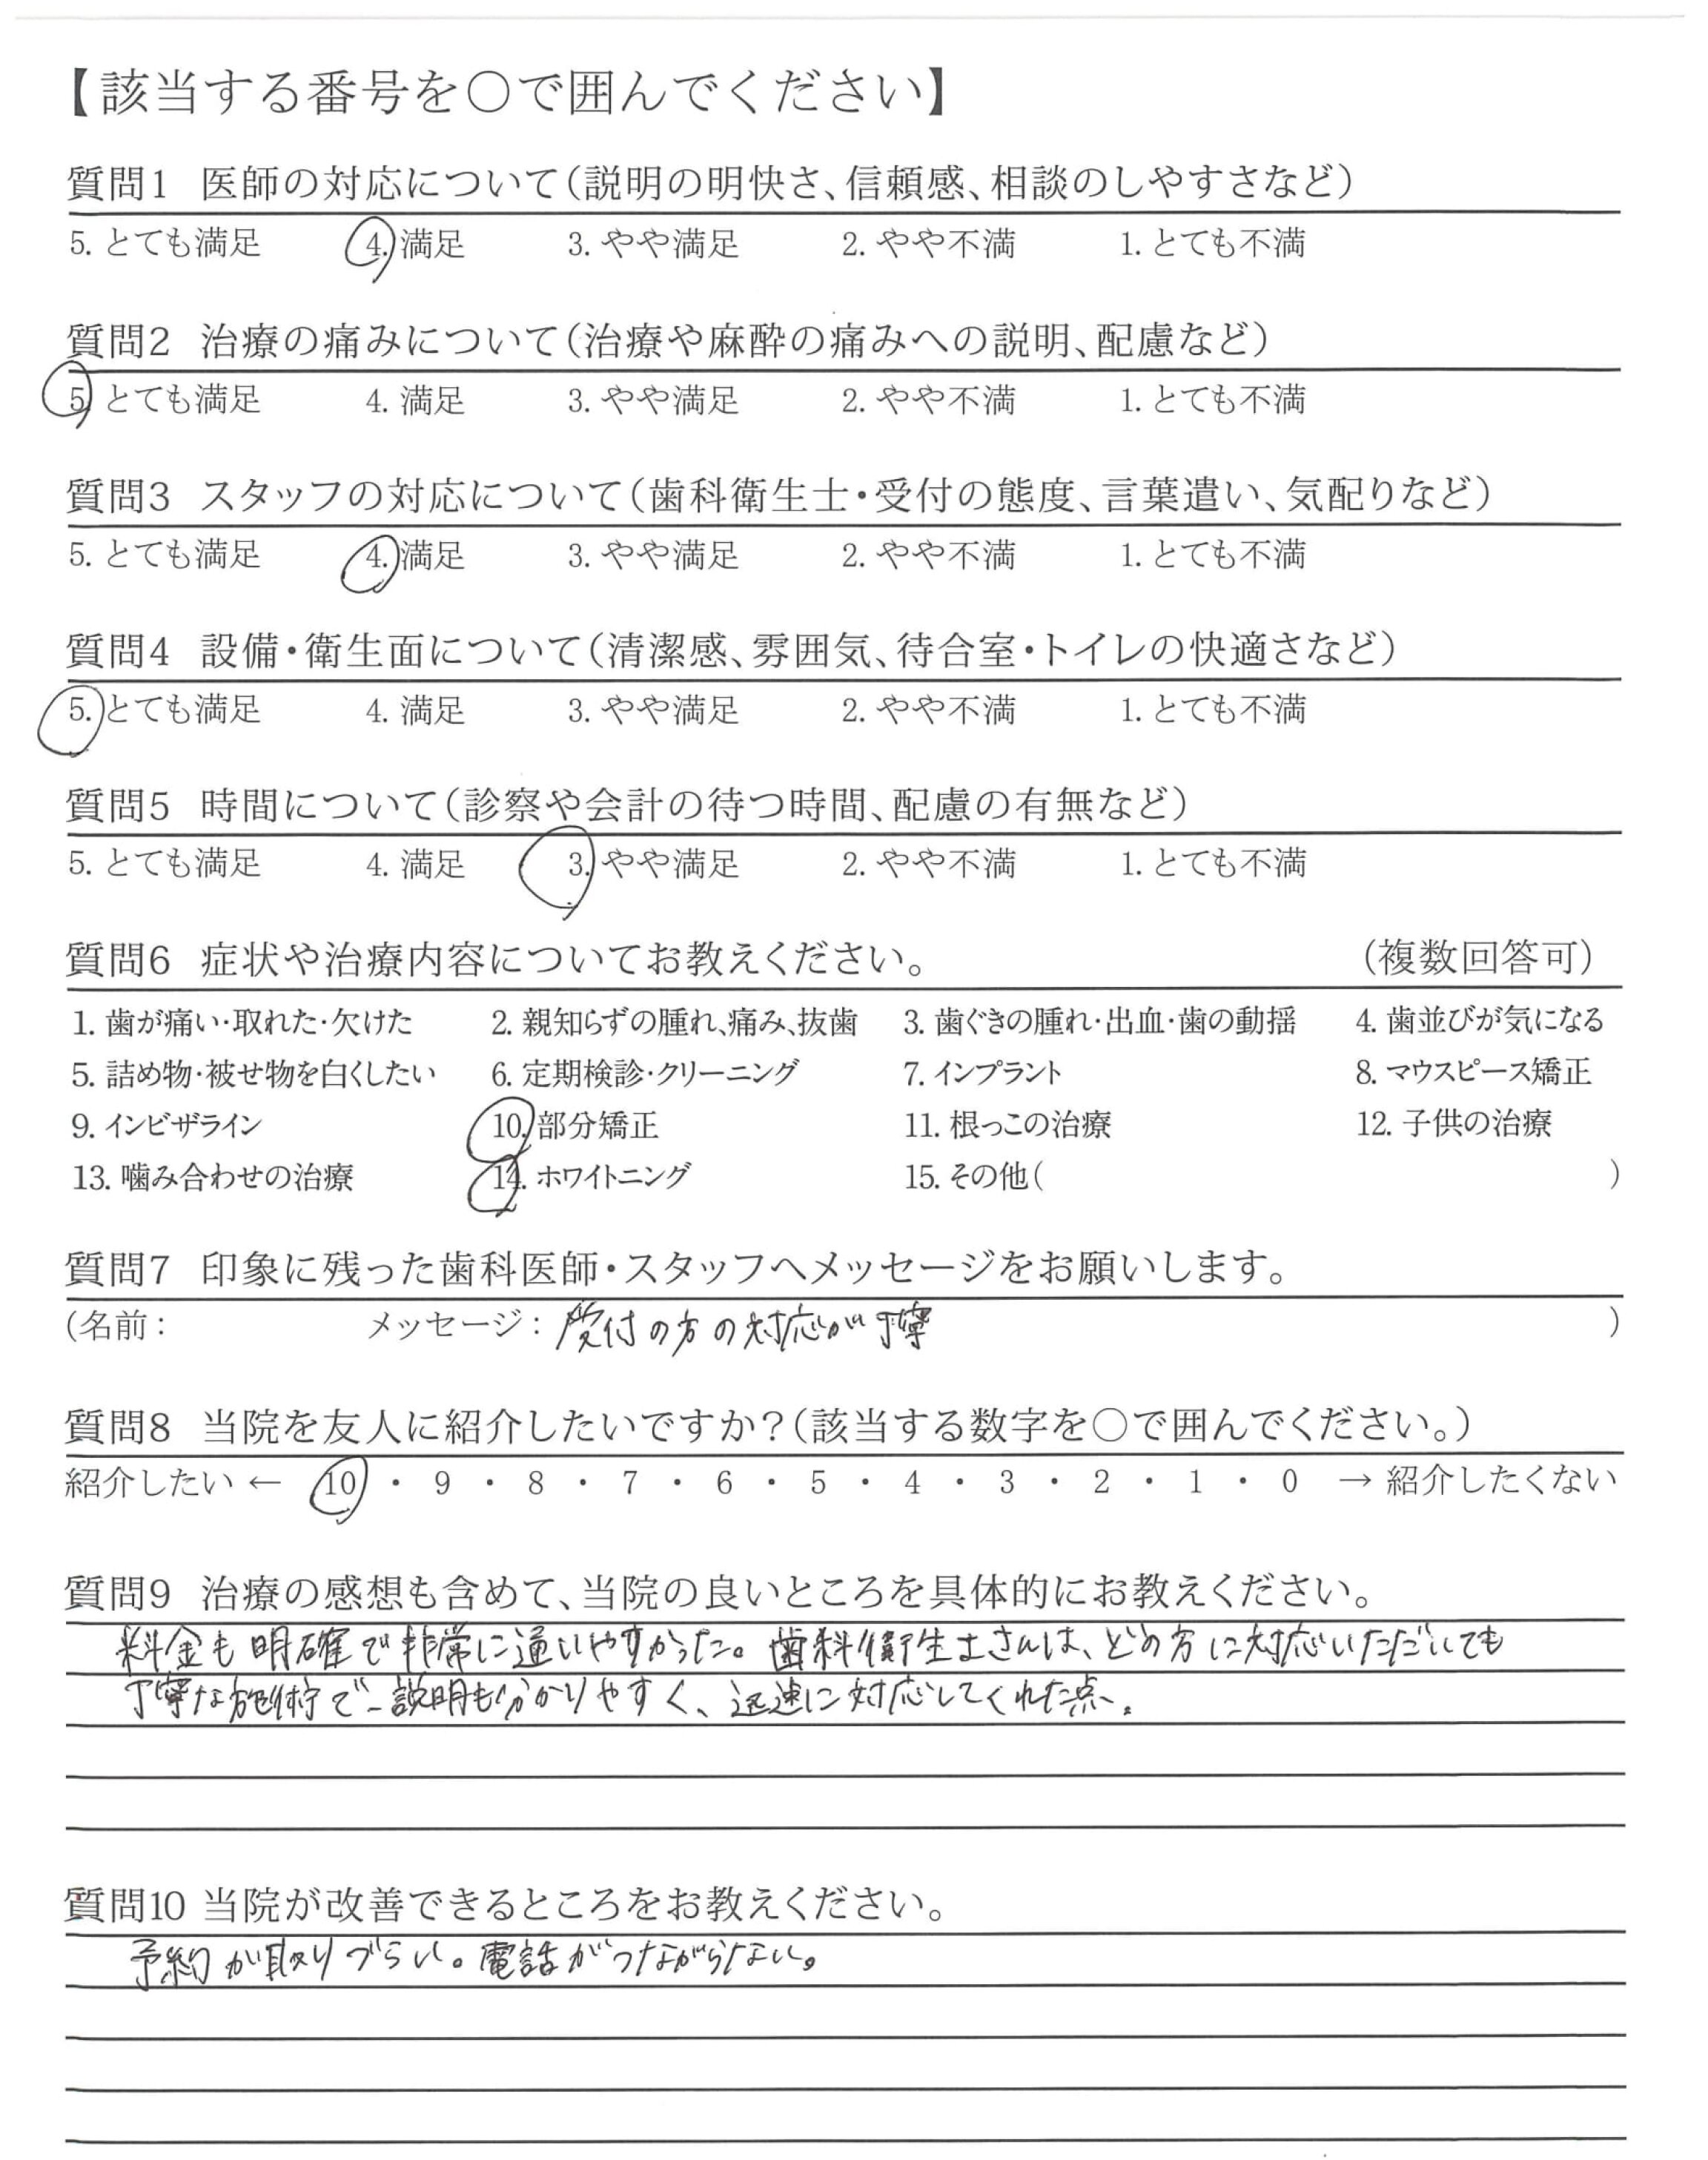 【該当する番号を○で囲んでください】
質問1 医師の対応について(説明の明快さ、信頼感、相談のしやすさなど)
5. とても満足 4. 満足 3. やや満足 2. やや不満 1. とても不満
質問2 治療の痛みについて(治療や麻酔の痛みへの説明、配慮など)
5. とても満足 4. 満足 3. やや満足 2. やや不満 1. とても不満
質問3 スタッフの対応について(歯科衛生士・受付の態度、言葉遣い、気配りなど)
5. とても満足 4. 満足 3. やや満足 2. やや不満 1. とても不満
質問4 設備・衛生面について(清潔感、雰囲気、待合室・トイレの快適さなど)
5. とても満足 4. 満足 3. やや満足 2. やや不満 1. とても不満
質問5 時間について(診察や会計の待つ時間、配慮の有無など)
5. とても満足 4. 満足 3. やや満足 2. やや不満 1. とても不満
質問6 症状や治療内容についてお教えください。 (複数回答可)
1. 歯が痛い・取れた・欠けた 2. 親知らずの腫れ、痛み、抜歯 3. 歯ぐきの腫れ・出血・歯の動揺 4. 歯並びが気になる
5. 詰め物・被せ物を白くしたい 6. 定期検診・クリーニング 7. インプラント 8. マウスピース矯正
9. インビザライン 10. 部分矯正 11. 根っこの治療 12. 子供の治療
13. 噛み合わせの治療 14. ホワイトニング 15. その他( )
質問7 印象に残った歯科医師・スタッフへメッセージをお願いします。
(名前: メッセージ: 受付の方の対応が丁寧 )
質問8 当院を友人に紹介したいですか?(該当する数字を○で囲んでください。)
紹介したい ← 10 ・ 9 ・ 8 ・ 7 ・ 6 ・ 5 ・ 4 ・ 3 ・ 2 ・ 1 ・ 0 → 紹介したくない
質問9 治療の感想も含めて、当院の良いところを具体的にお教えください。
料金も明確で非常に通いやすかった。歯科衛生士さんは、どの方に対応いただいても
丁寧な施術で、説明も分かりやすく、迅速に対応してくれた点。
質問10 当院が改善できるところをお教えください。
予約が取りづらい。電話がつながらない。